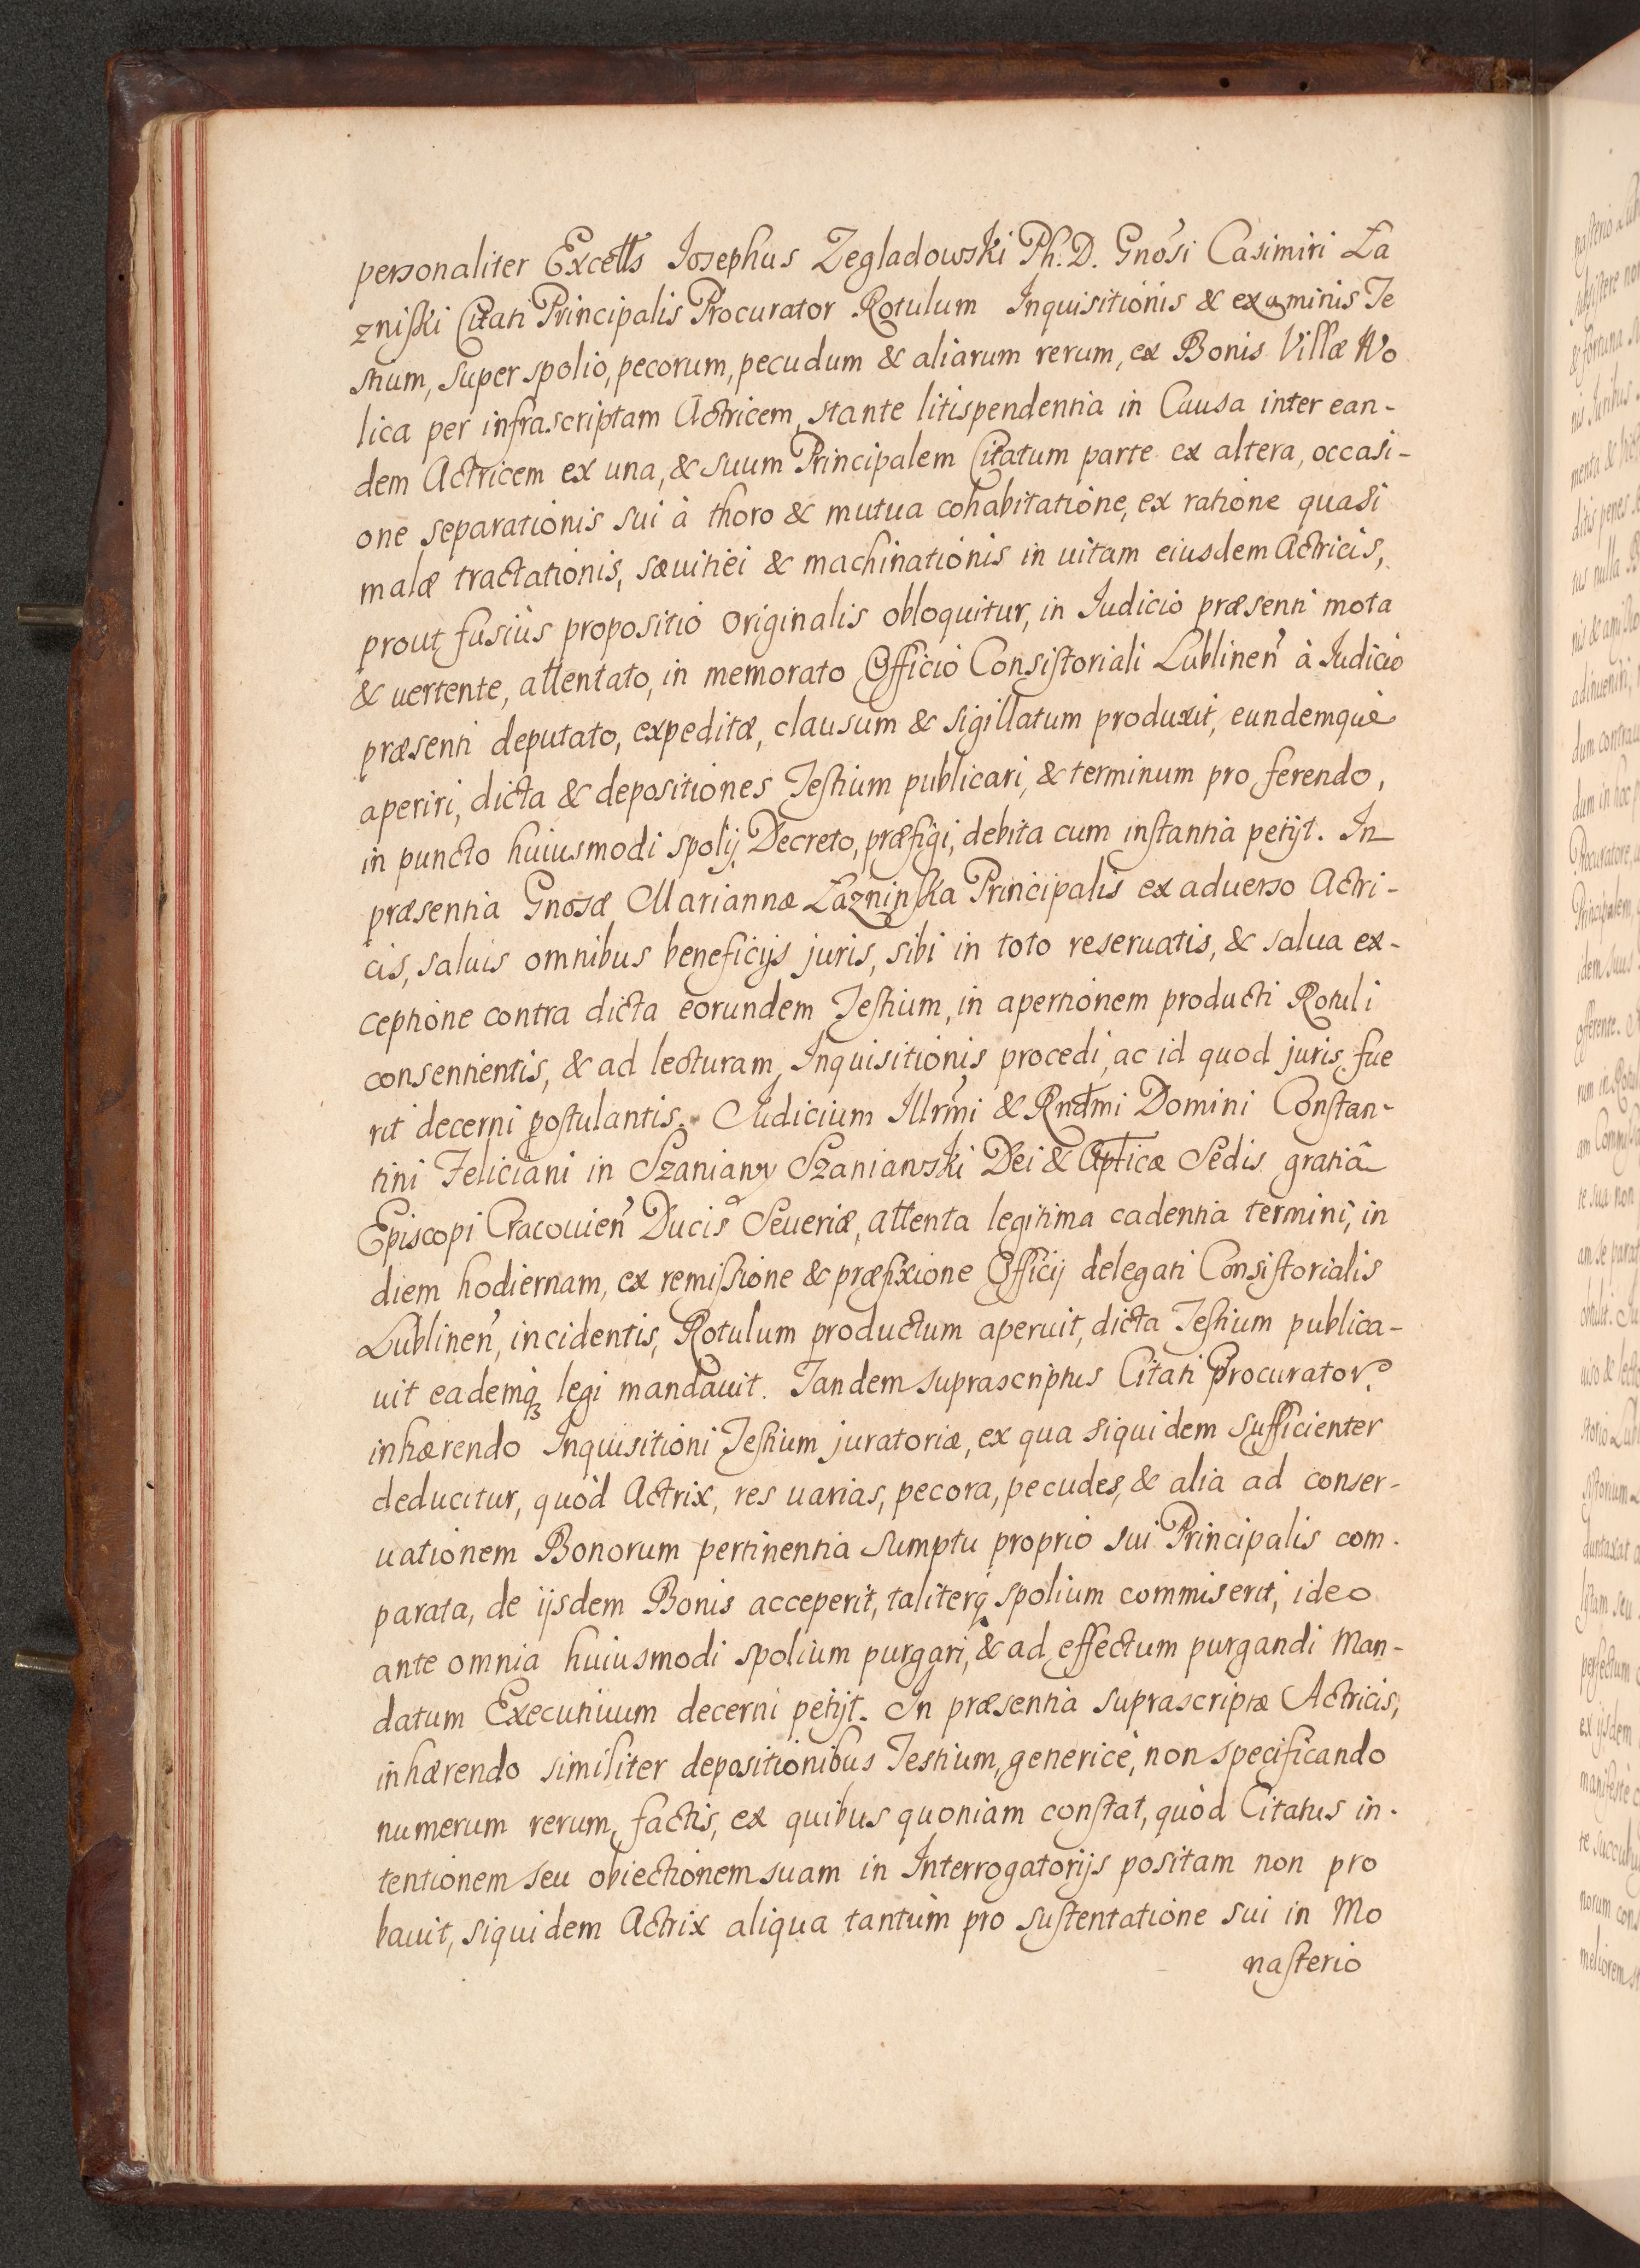 personaliter Excells Josephus Zegladowski Ph. D. Gnosi Casimiri La
zniski Citati Principalis Procurator Rotulum Inquisitionis & examinis Te
stium, super spolio, pecorum, pecudum & aliarum rerum, ex Bonis Villæ Wo
lica per infrascriptam Actricem, stante litispendentia in Causa inter ean-
dem Actricem ex una, & suum Principalem Citatum parte ex altera, occasi-
one separationis sui à thoro & mutua cohabitatione, ex ratione quasi
malæ tractationis, sævitiei & machinationis in uitam eiusdem Actricis,
prout fusiùs propositio originalis obloquitur, in Judicio præsenti mota
& uertente, attentato, in memorato Officio Consistoriali Lublinen̄ à Judicio
præsenti deputato, expeditæ, clausum & sigillatum produxit, eundemquè
aperiri, dicta & depositiones Testium publicari, & terminum pro ferendo,
in puncto huiusmodi spolij Decreto, præfigi, debita cum instantia petijt. In
præsentia Gnosæ Mariannæ Lazninska Principalis ex aduerso Actri-
cis, saluis omnibus beneficijs juris, sibi in toto reseruatis, & salua ex-
ceptione contra dicta eorundem Testium, in apertionem producti Rotuli
consentientis, & ad lecturam Inquisitionis procedi, ac id quod juris fue
rit decerni postulantis. Judicium Illrm̄i & Rndm̄i Domini Constan-
tini Feliciani in Szaniawy Szaniawski Dei & Aptĭcæ Sedis gratiâ
Episcopi Cracouien̄ Ducis Seueriæ, attenta legitima cadentia termini, in
diem hodiernam, ex remissione & præfixione Officij delegati Consistorialis
Lublinen̄, incidentis, Rotulum productum aperuit, dicta Testium publica-
uit eademq₃ legi mandauit. Tandem suprascriptus Citati Procurator
inhærendo Inquisitioni Testium juratoriæ, ex qua siquidem sufficienter
deducitur, quòd Actrix, res uarias, pecora, pecudes, & alia ad conser-
uationem Bonorum pertinentia sumptu proprio sui Principalis com-
parata, de ijsdem Bonis acceperit, taliterq̨ spolium commiserit, ideo
ante omnia huiusmodi spolium purgari, & ad effectum purgandi Man-
datum Executiuum decerni petijt. In præsentia suprascriptæ Actricis,
inhærendo similiter depositionibus Testium, genericè, non specificando
numerum rerum, factis, ex quibus quoniam constat, quòd Citatus in-
tentionem seu obiectionem suam in Interrogatorijs positam non pro
bauit, siquidem Actrix aliqua tantùm pro sustentatione sui in Mo
nasterio